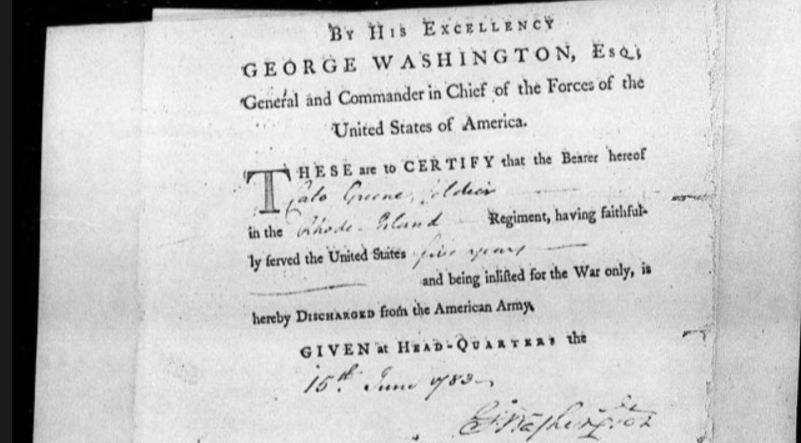 BY HIS EXCELLENCY
GEORGE WASHINGTON, Esq;
General and Commander in Chief of the Forces of the
United States of America.
THESE are to CERTIFY that the Bearer hereof
Cato Greene, soldier
in the Rhode Island Regiment, having faithful-
ly served the United States five years
and being inlisted for the War only, is
hereby DISCHARGED from the American Army.
GIVEN at HEAD-QUARTERS the
15th. June 1783
G:Washington